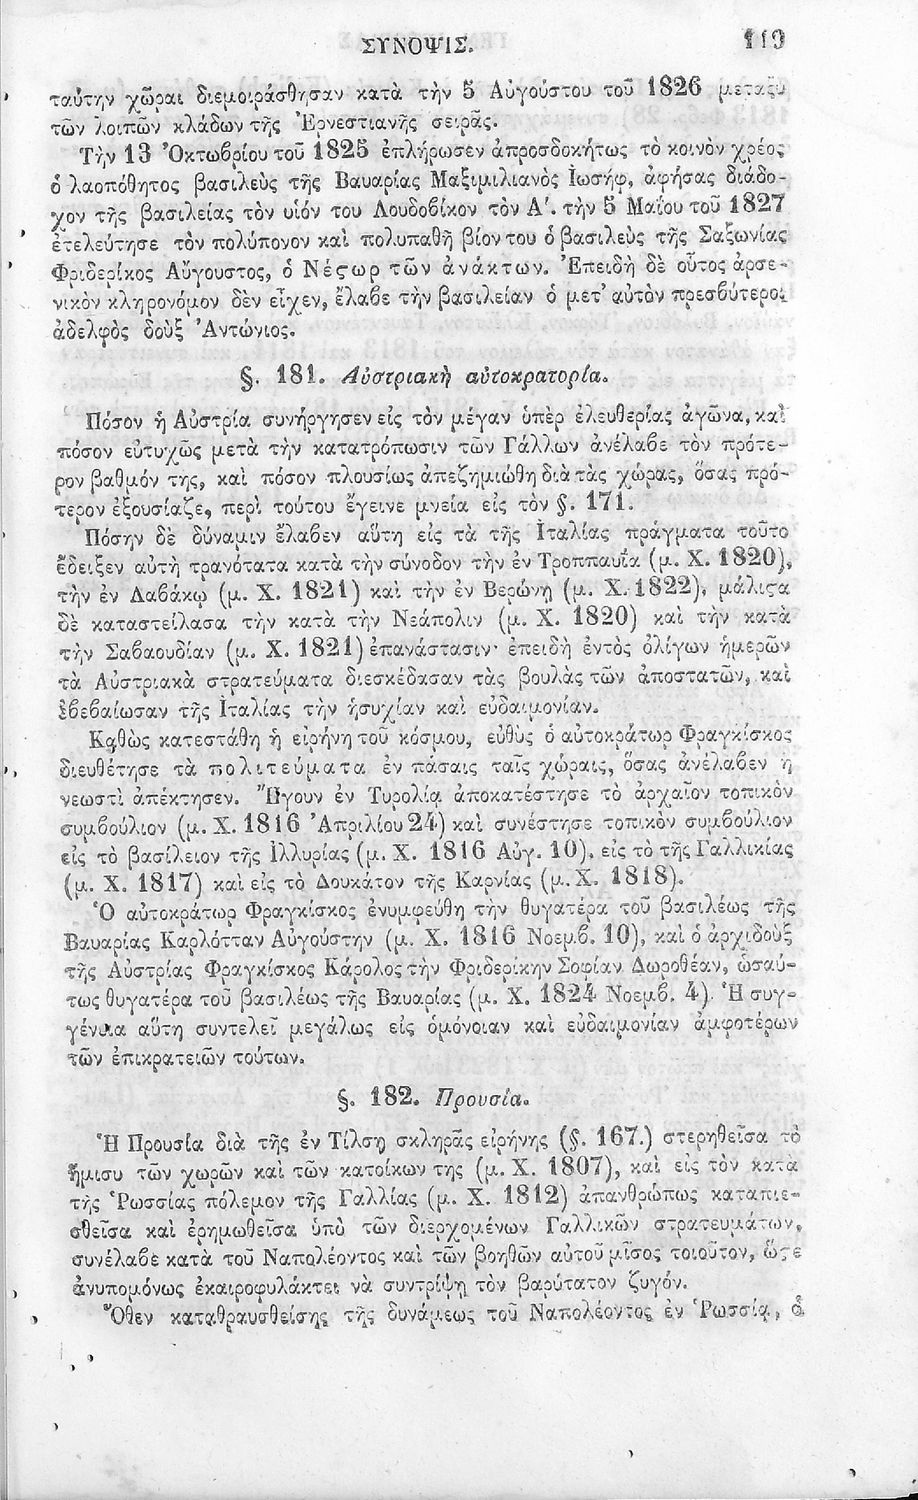 ΣΥΝΟΨΙΣ. 119
ταύτην χῶραι διεμοιράσθησαν κατὰ τὴν 5 Αὐγούστου τοῦ 1826 μεταξὺ
τῶν λοιπῶν κλάδων τῆς Ἐρνεστιανῆς σειρᾶς.
Τὴν 13 Ὀκτωβρίου τοῦ 1825 ἐπλήρωσεν ἀπροσδοκήτως τὸ κοινὸν χρέος
ὁ λαοπόθητος βασιλεὺς τῆς Βαυαρίας Μαξιμιλιανὸς Ἰωσήφ, ἀφήσας διάδο-
χον τῆς βασιλείας τὸν υἱόν του Λουδοβίκον τὸν Α΄. τὴν 5 Μαΐου τοῦ 1827
ἐτελεύτησε τὸν πολύπονον καὶ πολυπαθῆ βίον του ὁ βασιλεὺς τῆς Σαξωνίας
Φριδερίκος Αὔγουστος, ὁ Νέϛωρ τῶν ἀνάκτων. Ἐπειδὴ δὲ οὗτος ἀρσε-
νικὸν κληρονόμον δὲν εἶχεν, ἔλαβε τὴν βασιλείαν ὁ μετ' αὐτὸν πρεσβύτερος
ἀδελφὸς δοὺξ Ἀντώνιος.
§. 181. Αὐστριακὴ αὐτοκρατορία.
Πόσον ἡ Αὐστρία συνήργησεν εἰς τὸν μέγαν ὑπὲρ ἐλευθερίας ἀγῶνα, καὶ
πόσον εὐτυχῶς μετὰ τὴν κατατρόπωσιν τῶν Γάλλων ἀνέλαβε τὸν πρότε-
ρον βαθμόν της, καὶ πόσον πλουσίως ἀπεζημιώθη διὰ τὰς χώρας, ὅσας πρό-
τερον ἐξουσίαζε, περὶ τούτου ἔγεινε μνεία εἰς τὸν §. 171.
Πόσην δὲ δύναμιν ἔλαβεν αὕτη εἰς τὰ τῆς Ἰταλίας πράγματα τοῦτο
ἔδειξεν αὐτὴ τρανότατα κατὰ τὴν σύνοδον τὴν ἐν Τροππαυΐα (μ. Χ. 1820),
τὴν ἐν Λαβάκῳ (μ. Χ. 1821) καὶ τὴν ἐν Βερώνῃ (μ. Χ. 1822), μάλιϛα
δὲ καταστείλασα τὴν κατὰ τὴν Νεάπολιν (μ. Χ. 1820) καὶ τὴν κατὰ
τὴν Σαβαουδίαν (μ. Χ. 1821) ἐπανάστασιν· ἐπειδὴ ἐντὸς ὀλίγων ἡμερῶν
τὰ Αὐστριακὰ στρατεύματα διεσκέδασαν τὰς βουλὰς τῶν ἀποστατῶν, καὶ
ἐβεβαίωσαν τῆς Ἰταλίας τὴν ἡσυχίαν καὶ εὐδαιμονίαν.
Καθὼς κατεστάθη ἡ εἰρήνη τοῦ κόσμου, εὐθὺς ὁ αὐτοκράτωρ Φραγκίσκος
διευθέτησε τὰ πολιτεύματα ἐν πάσαις ταῖς χώραις, ὅσας ἀνέλαβεν ἢ
νεωστὶ ἀπέκτησεν. Ἤγουν ἐν Τυρολίᾳ ἀποκατέστησε τὸ ἀρχαῖον τοπικὸν
συμβούλιον (μ. Χ. 1816 Ἀπριλίου 24) καὶ συνέστησε τοπικὸν συμβούλιον
εἰς τὸ βασίλειον τῆς Ἰλλυρίας (μ. Χ. 1816 Αὐγ. 10), εἰς τὸ τῆς Γαλλικίας
(μ. Χ. 1817) καὶ εἰς τὸ Δουκάτον τῆς Καρνίας (μ. Χ. 1818).
Ὁ αὐτοκράτωρ Φραγκίσκος ἐνυμφεύθη τὴν θυγατέρα τοῦ βασιλέως τῆς
Βαυαρίας Καρλότταν Αὐγούστην (μ. Χ. 1816 Νοεμβ. 10), καὶ ὁ ἀρχιδοὺξ
τῆς Αὐστρίας Φραγκίσκος Κάρολος τὴν Φριδερίκην Σοφίαν Δωροθέαν, ὡσαύ-
τως θυγατέρα τοῦ βασιλέως τῆς Βαυαρίας (μ. Χ. 1824 Νοεμβ. 4). Ἡ συγ-
γένεια αὕτη συντελεῖ μεγάλως εἰς ὁμόνοιαν καὶ εὐδαιμονίαν ἀμφοτέρων
τῶν ἐπικρατειῶν τούτων.
§. 182. Προυσία.
Ἡ Προυσία διὰ τῆς ἐν Τίλσῃ σκληρᾶς εἰρήνης (§. 167.) στερηθεῖσα τὸ
ἥμισυ τῶν χωρῶν καὶ τῶν κατοίκων της (μ. Χ. 1807), καὶ εἰς τὸν κατὰ
τῆς Ῥωσσίας πόλεμον τῆς Γαλλίας (μ. Χ. 1812) ἀπανθρώπως καταπιε-
σθεῖσα καὶ ἐρημωθεῖσα ὑπὸ τῶν διερχομένων Γαλλικῶν στρατευμάτων,
συνέλαβε κατὰ τοῦ Ναπολέοντος καὶ τῶν βοηθῶν αὐτοῦ μῖσος τοιοῦτον, ὥϛε
ἀνυπομόνως ἐκαιροφυλάκτει νὰ συντρίψῃ τὸν βαρύτατον ζυγόν.
Ὅθεν καταθραυσθείσης τῆς δυνάμεως τοῦ Ναπολέοντος ἐν Ῥωσσίᾳ, ὁ